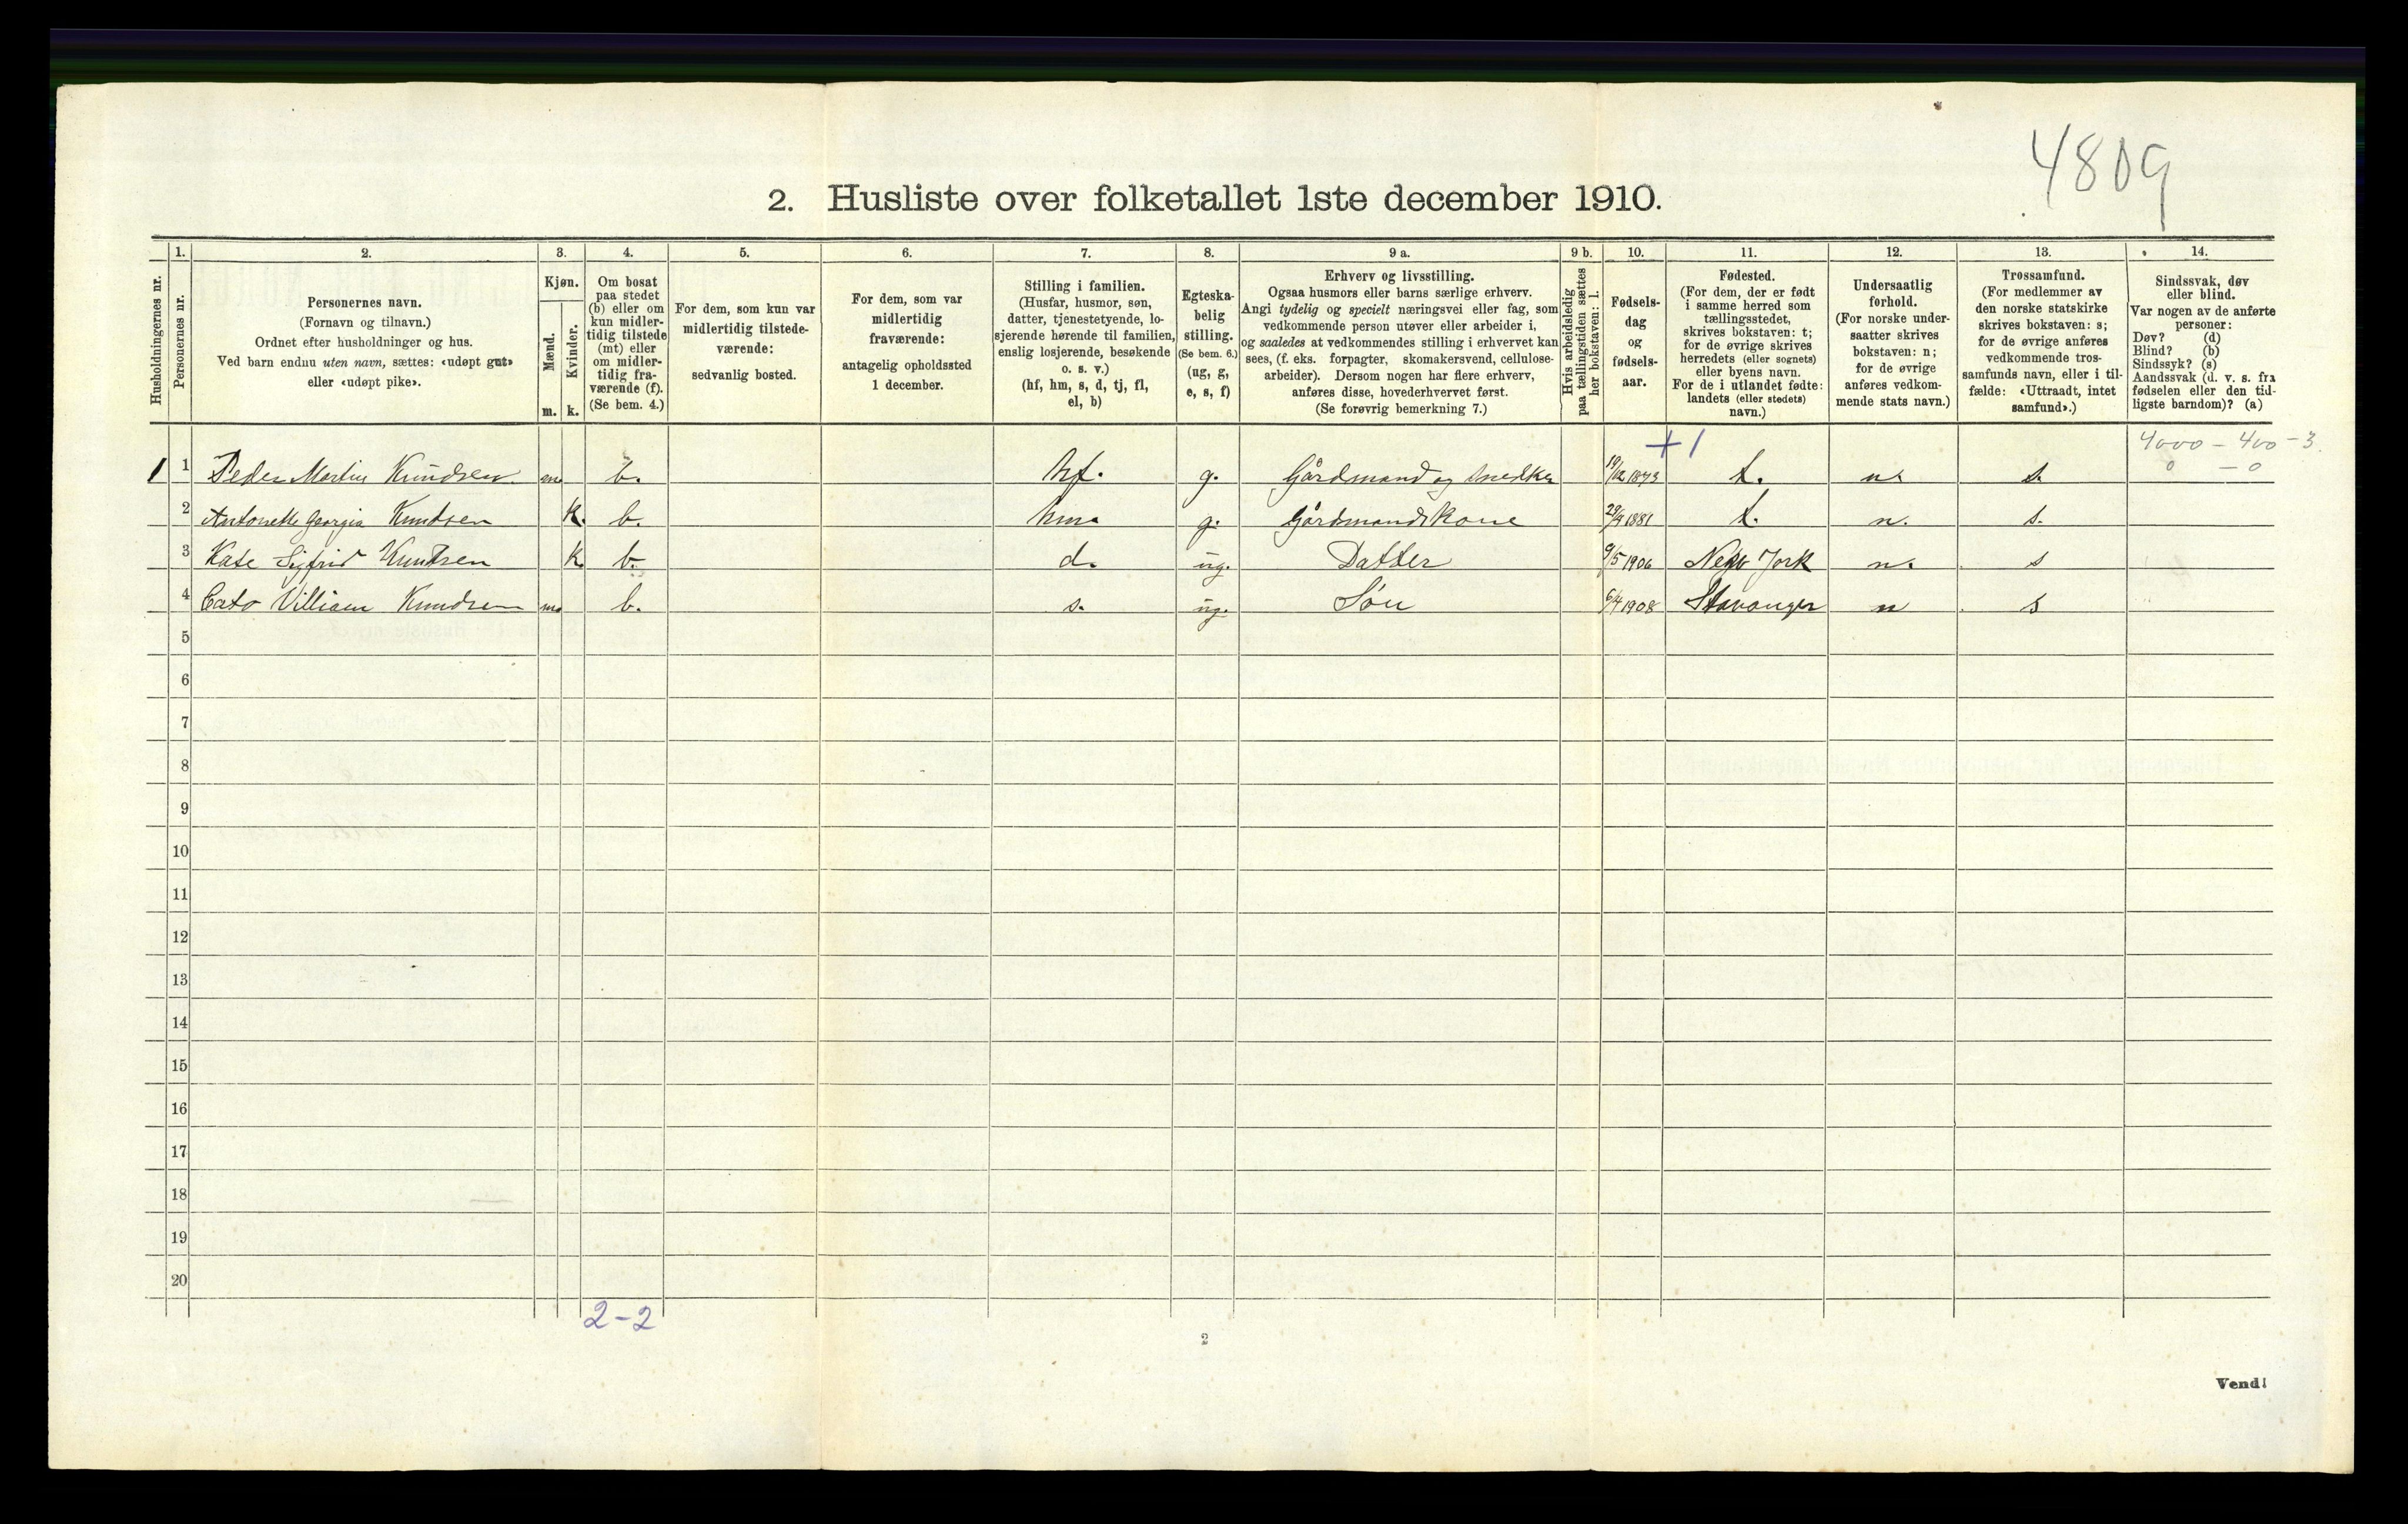 4809
2. Husliste over folketallet 1ste december 1910.
Husholdningernes nr.
1.
Personernes nr.
2.
Personernes navn.
(Fornavn og tilnavn.)
Ordnet efter husholdninger og hus.
Ved barn endnu uten navn, sættes: «udøpt gut»
eller «udøpt pike».
3.
Kjøn.
Mænd.
Kvinder.
m. k.
4.
Om bosat
paa stedet
(b) eller om
kun midler-
tidig tilstede
(mt) eller
om midler-
tidig fra-
værende (f).
(Se bem. 4.)
5.
For dem, som kun var
midlertidig tilstede-
værende:
sedvanlig bosted.
6.
For dem, som var
midlertidig
fraværende:
antagelig opholdssted
1 december.
7.
Stilling i familien.
(Husfar, husmor, søn,
datter, tjenestetyende, lo-
sjerende hørende til familien,
enslig losjerende, besøkende
o. s. v.)
(hf, hm, s, d, tj, fl,
el, b)
8.
Egteska-
belig
stilling.
(Se bem. 6.)
(ug, g,
e, s, f)
9 a.
Erhverv og livsstilling.
Ogsaa husmors eller barns særlige erhverv.
Angi tydelig og specielt næringsvei eller fag, som
vedkommende person utøver eller arbeider i,
og saaledes at vedkommendes stilling i erhvervet kan
sees, (f. eks. forpagter, skomakersvend, cellulose-
arbeider). Dersom nogen har flere erhverv,
anføres disse, hovederhvervet først.
(Se forøvrig bemerkning 7.)
9 b.
Hvis arbeidsledig
paa tællingstiden sættes
her bokstaven: l.
10.
Fødsels-
dag
og
fødsels-
aar.
11.
Fødested.
(For dem, der er født
i samme herred som
tællingsstedet,
skrives bokstaven: t;
for de øvrige skrives
herredets (eller sognets)
eller byens navn.
For de i utlandet fødte:
landets (eller stedets)
navn.)
12.
Undersaatlig
forhold.
(For norske under-
saatter skrives
bokstaven: n;
for de øvrige
anføres vedkom-
mende stats navn.)
13.
Trossamfund.
(For medlemmer av
den norske statskirke
skrives bokstaven: s;
for de øvrige anføres
vedkommende tros-
samfunds navn, eller i til-
fælde: «Uttraadt, intet
samfund».)
14.
Sindssvak, døv
eller blind.
Var nogen av de anførte
personer:
Døv? (d)
Blind? (b)
Sindssyk? (s)
Aandssvak (d. v. s. fra
fødselen eller den tid-
ligste barndom)? (a)
+1 4000 – 400 – 3.
0 – 0
1 1 Peder Martin Knudsen m b. hf. g. Gårdmand og snedker 19/12 1873 t. n. s.
2 Antonette Georgia Knudsen k. b. hm. g. Gårdmandskone 29/9 1881 t. n. s.
3 Kate Sigfrid Knudsen k b. d. ug. Datter 9/5 1906 New York n. s
4 Cato Villiam Knudsen m b. s. ug. Søn 6/4 1908 Stavanger n s
5
6
7
8
9
10
11
12
13
14
15
16
17
18
19
20
2-2
2
Vend!